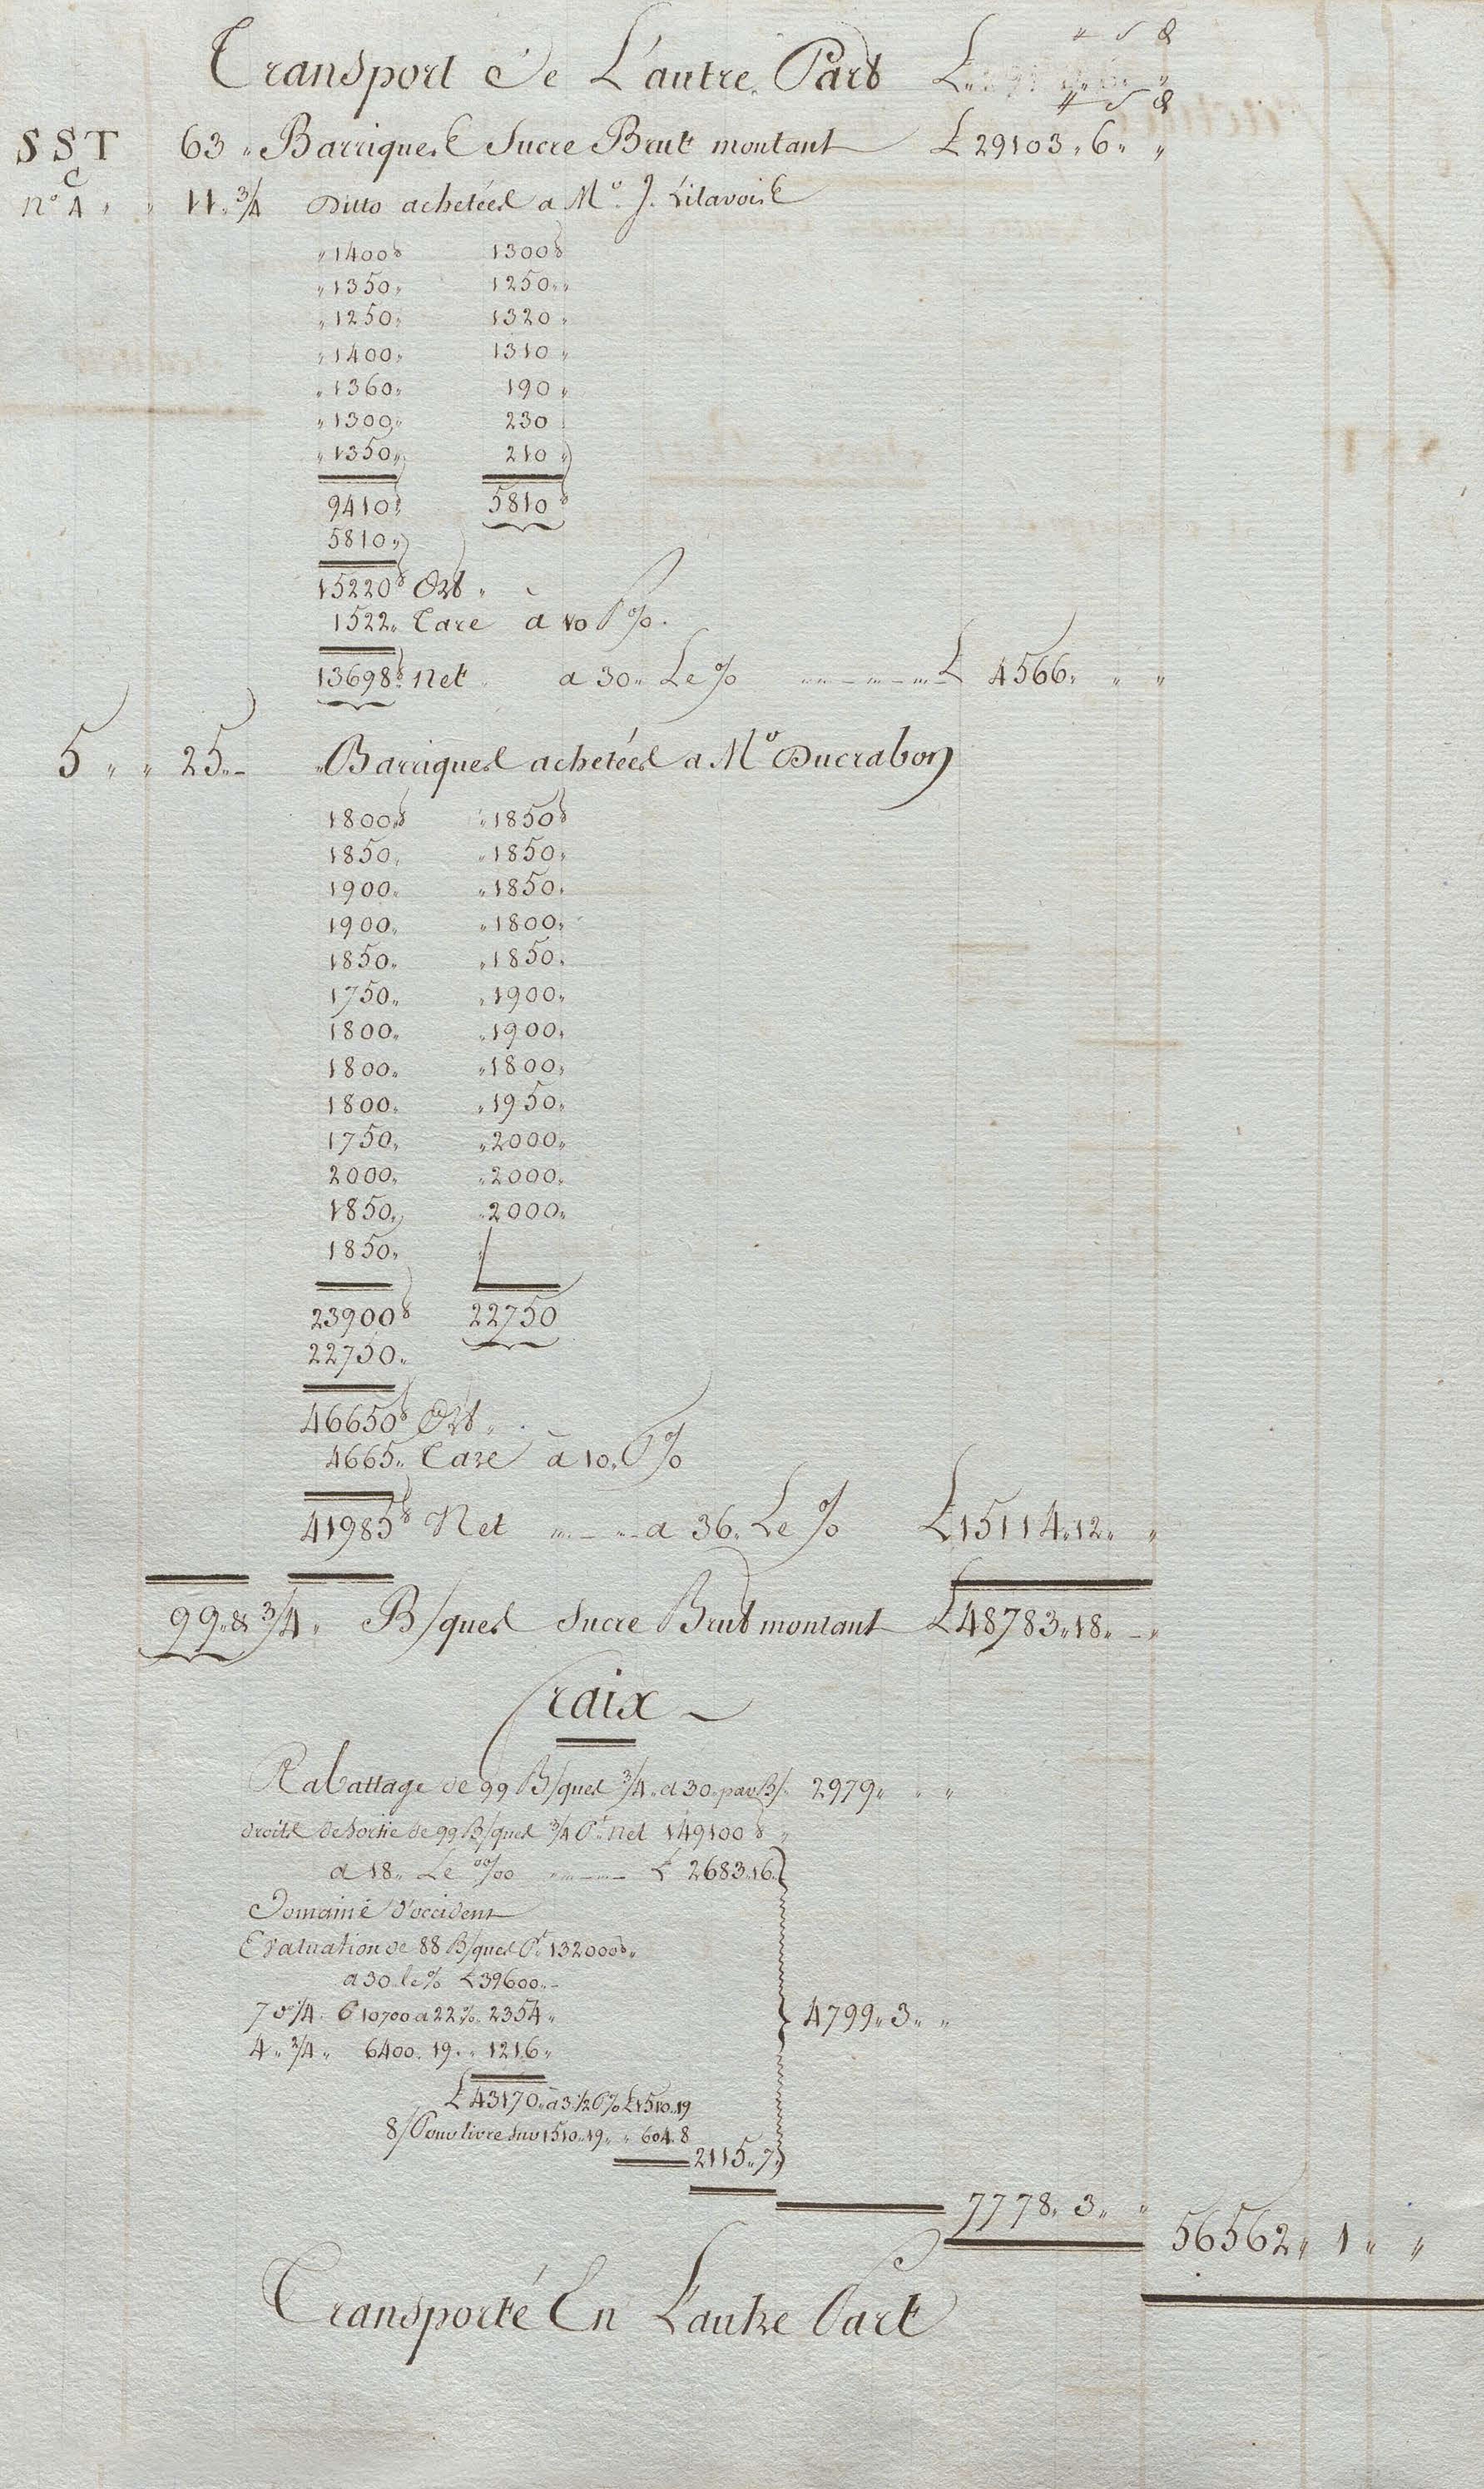 Transport de L'autre Part £
" s d
SST 63 " Barriques Sucre Brut montant £ 29103 " 6 " "
n° 4 " " 11 " 3/4 Ditto achetées a Mr. J.
" 1400 lb 1300 lb
" 1350 " 1250 "
" 1250 " 1320 "
" 1400 " 1310 "
" 1360 " 190 "
" 1300 " 230
" 1350 " 210 "
9410 lb 5810 lb
5810 "
15220 lb Ort "
1522 " Tare à 10 P%.
13698 lb Net a 30 " Le % £ 4566 " " "
5 " " 25 " - " Barriques achetées a Mr Ducrabon
1800 lb " 1850 lb
1850 " " 1850 "
1900 " " 1850 "
1900 " " 1800 "
1850 " " 1850 "
1750 " " 1900 "
1800 " " 1900 "
1800 " " 1800 "
1800 " " 1950 "
1750 " " 2000 "
2000 " " 2000 "
1850 " " 2000 "
1850 " "
23900 lb 22750
22750 "
46650 lb Ort "
4665 " Tare à 10 " P%
41985 lb Net a 36 " Le % £ 15114 " 12 " "
99 " & 3/4 " B/ques Sucre Brut montant £ 48783 " 18 " - "
fraix
Rabattage de 99 B/ques 3/4 " a 30 " par B/ " 2979 " " "
droits de Sortie de 99 B/ques 3/4 Pt. Net 149100 lb "
a 18 " Le %00 £ 2683 " 16 "
Domaine d'occident
Evaluation de 88 B/ques Pt. 132000 lb "
a 30 " le % £ 39600 " -
7 do/4 " P 10700 a 22 % " 2354 "
4 " 3/4 " 6400 " 19 " " 1216 "
4799 " 3 " "
£ 43170 " à 3 1/2 P% £ 1510 " 19
8/ Pour livre Sur 1510 " 19 " " 604 " 8
2115 " 7 "
7778 " 3 " "
56562 " 1 " "
Transporté En L'autre Part